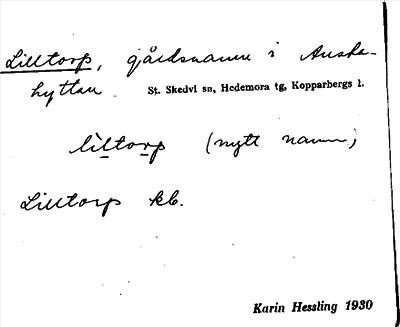 Lilltorp, gårdsnamn i Anska-
hyttan St. Skedvi sn, Hedemora tg, Kopparbergs l.
liltorp (nytt namn)
Lilltorp kb.
Karin Hessling 1930